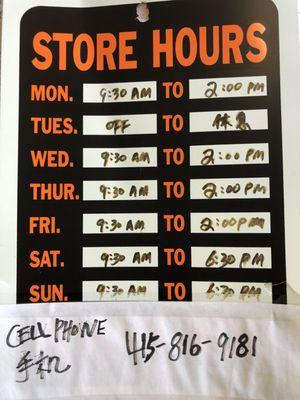 STORE HOURS
MON. 9:30 AM TO 2:00 PM
TUES. OFF TO 休息
WED. 9:30 AM TO 2:00 PM
THUR. 9:30 AM TO 2:00 PM
FRI. 9:30 AM TO 2:00 PM
SAT. 9:30 AM TO 6:30 PM
SUN. 9:30 AM TO 6:30 PM
CELL PHONE
手机 415-816-9181